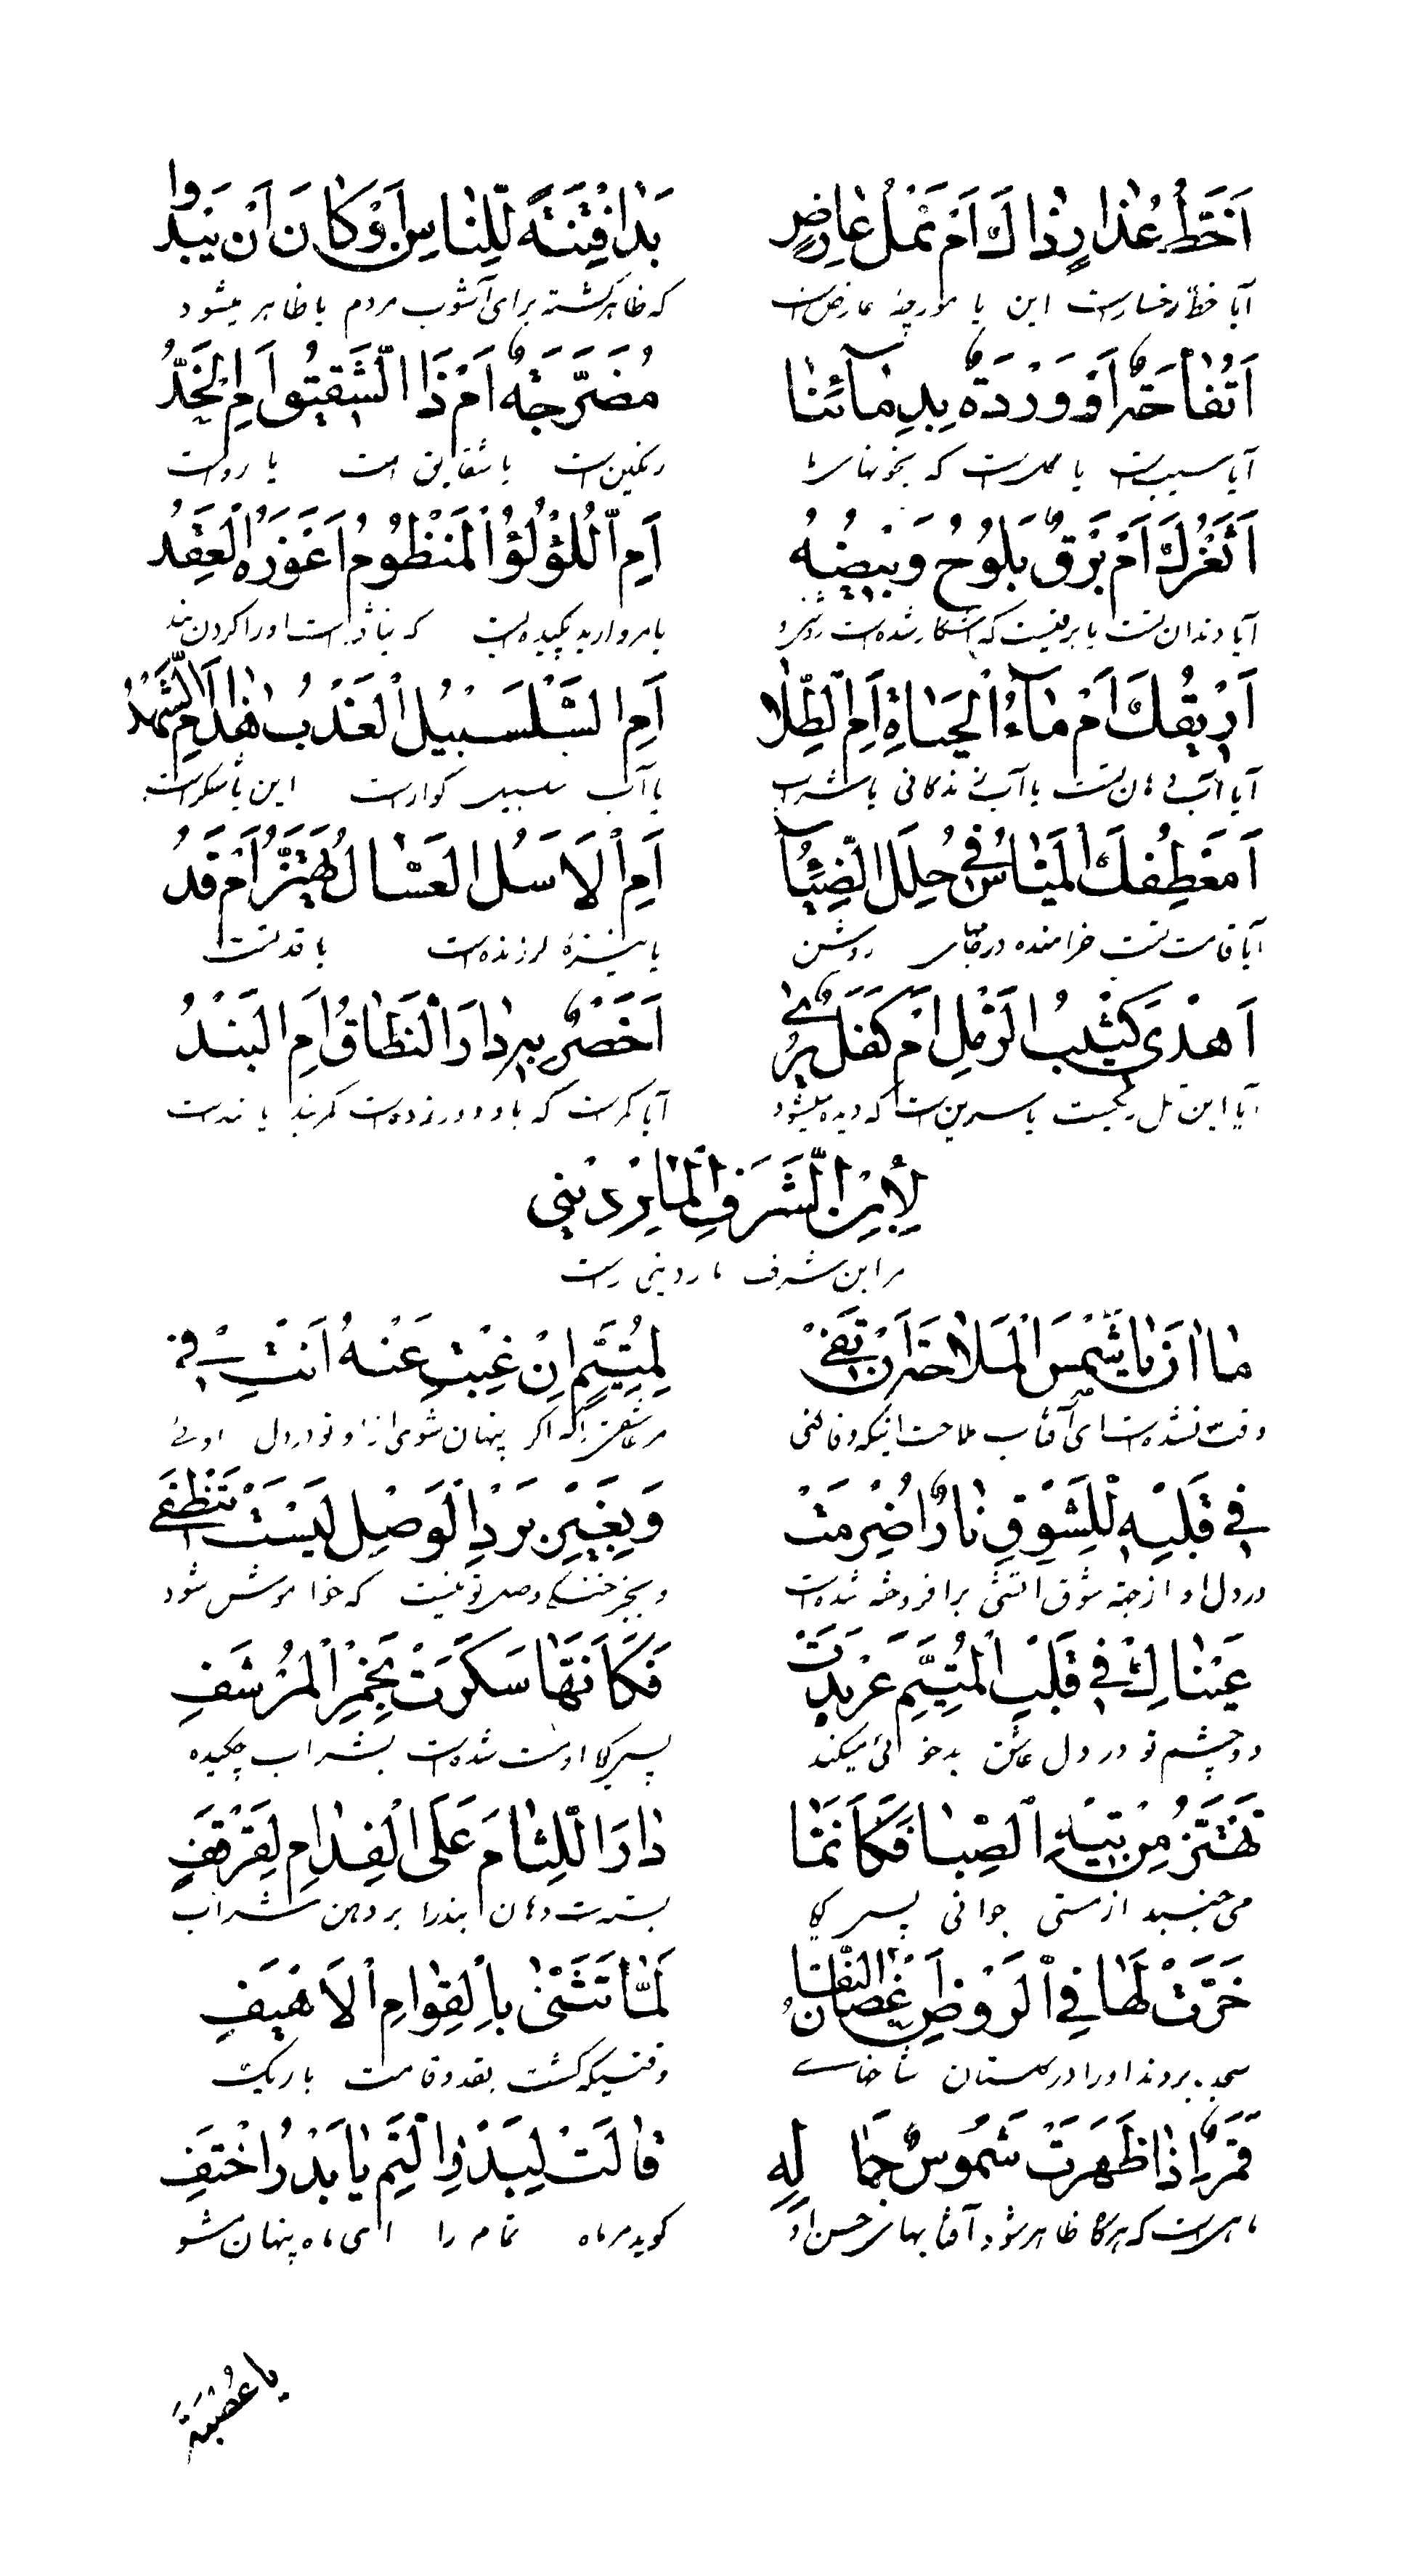 اَخَطُّ عُذٰارٍ ذٰاكَ اَمْ نَمْلُ عٰارِضٍ بَدٰا فِتْنَةً لِلنّٰاسِ اَوْ كٰانَ اَنْ يَبْدُوا
آیا خط رخسارست این یا مورچهٔ عارض است که ظاهر گشته برای آشوب مردم یا ظاهر میشود
اَتُفّٰاحَةٌ اَوْ وَرْدَةٌ بِدِمٰآئِنٰا مُضَرَّجَةٌ اَمْ ذَا الشَّقيقُ اَمِ الْخَدُّ
آیا سیبست یا گلست که بخونهای ما رنگین است یا شقایق است یا روست
اَثَغْرُكَ اَمْ بَرْقٌ يَلُوحُ وَميضُهُ اَمِ اللُّؤْلُؤُ الْمَنْظُومُ اَعْوَزَهُ الْعِقْدُ
آیا دندان تست یا برقیست که آشکار شده است روشنی او یا مروارید
اَريقُكَ اَمْ مٰآءُ الْحَيٰاةِ اَمِ الطِّلٰا اَمِ السَّلْسَبيلُ الْعَذْبُ هٰذٰا اَمِ الشَّهْدُ
آیا آب دهان تست یا آب زندگانی یا شراب یا آب سلسبیل گواراست این یا شکر است
اَمَعْطِفُكَ الْمَيّٰاسُ في حُلَلِ الضِّيٰآ اَمِ الْاَسَلُ الْعَسّٰالُ يَهْتَزُّ اَمْ قَدُّ
آیا قامت تست خرامنده در روشن یا نیزهٔ لرزنده است یا قد تست
اَهٰذٰى كَثيبُ الرَّمْلِ اَمْ كَفَلٌ يُرٰى اَخَصْرٌ بِهِ دٰارَ النِّطٰاقُ اَمِ الْبَنْدُ
آیا این تل ریگست یا سرین است که دیده میشود آیا کمرست که باو دور زده است کمربند یا بند است
لِابْنِ الشَّرَفِ الْمٰارِديني
مر ابن شرف ماردینی راست
مٰا اٰنَ يٰا شَمْسَ الْمَلٰاحَةِ اَنْ تَفي لِمُتَيَّمٍ اِنْ غِبْتِ عَنْهُ اَنْتِ في
وقت نشده است ای آفتاب ملاحت اینکه وفا کنی مر عاشقی را که اگر پنهان شوی از او تو در دل اوئی
في قَلْبِهِ لِلشَّوْقِ نٰارٌ اُضْرِمَتْ وَبِغَيْرِ بَرْدِ الْوَصْلِ لَيْسَتْ تَنْطَفي
در دل او از جهة شوق آتشی برافروخته شده است و بجز خنکی وصل تو نیست که خاموش شود
عَيْنٰاكِ في قَلْبِ الْمُتَيَّمِ عَرْبَدَتْ فَكَاَنَّهٰا سَكَرَتْ بِخَمْرِ الْمَرْشَفِ
دو چشم تو در دل عاشق بدخوئی میکند پس گویا او مست شده است بشراب چکیده
تَهْتَزُّ مِنْ تيهِ الصِّبٰا فَكَاَنَّمٰا دٰارَ اللِّثٰامَ عَلَى الْفِدٰامِ لِقَرْقَفِ
می جنبد از مستی جوانی پس گویا بسته است دهان بند را بر دهن شراب
خَرَّتْ لَهٰا فِي الرَّوْضِ اَغْصٰانُ النَّقٰا لَمّٰا تَثَنّٰى بِالْقِوٰامِ الْاَهْيَفِ
سجده بردند او را در گلستان شاخهای وقتیکه گشت بقد و قامت باریک
قَمَرٌ اِذٰا ظَهَرَتْ شُمُوسُ جَمٰالِهِ قٰالَتْ لِبَدْرِ التِّمِّ يٰا بَدْرُ اخْتَفِ
ماهیست که هرگاه ظاهر شود آفتابهای حسن او گوید مر ماه تمام را ای ماه پنهان شو
يا عُصْبَةً